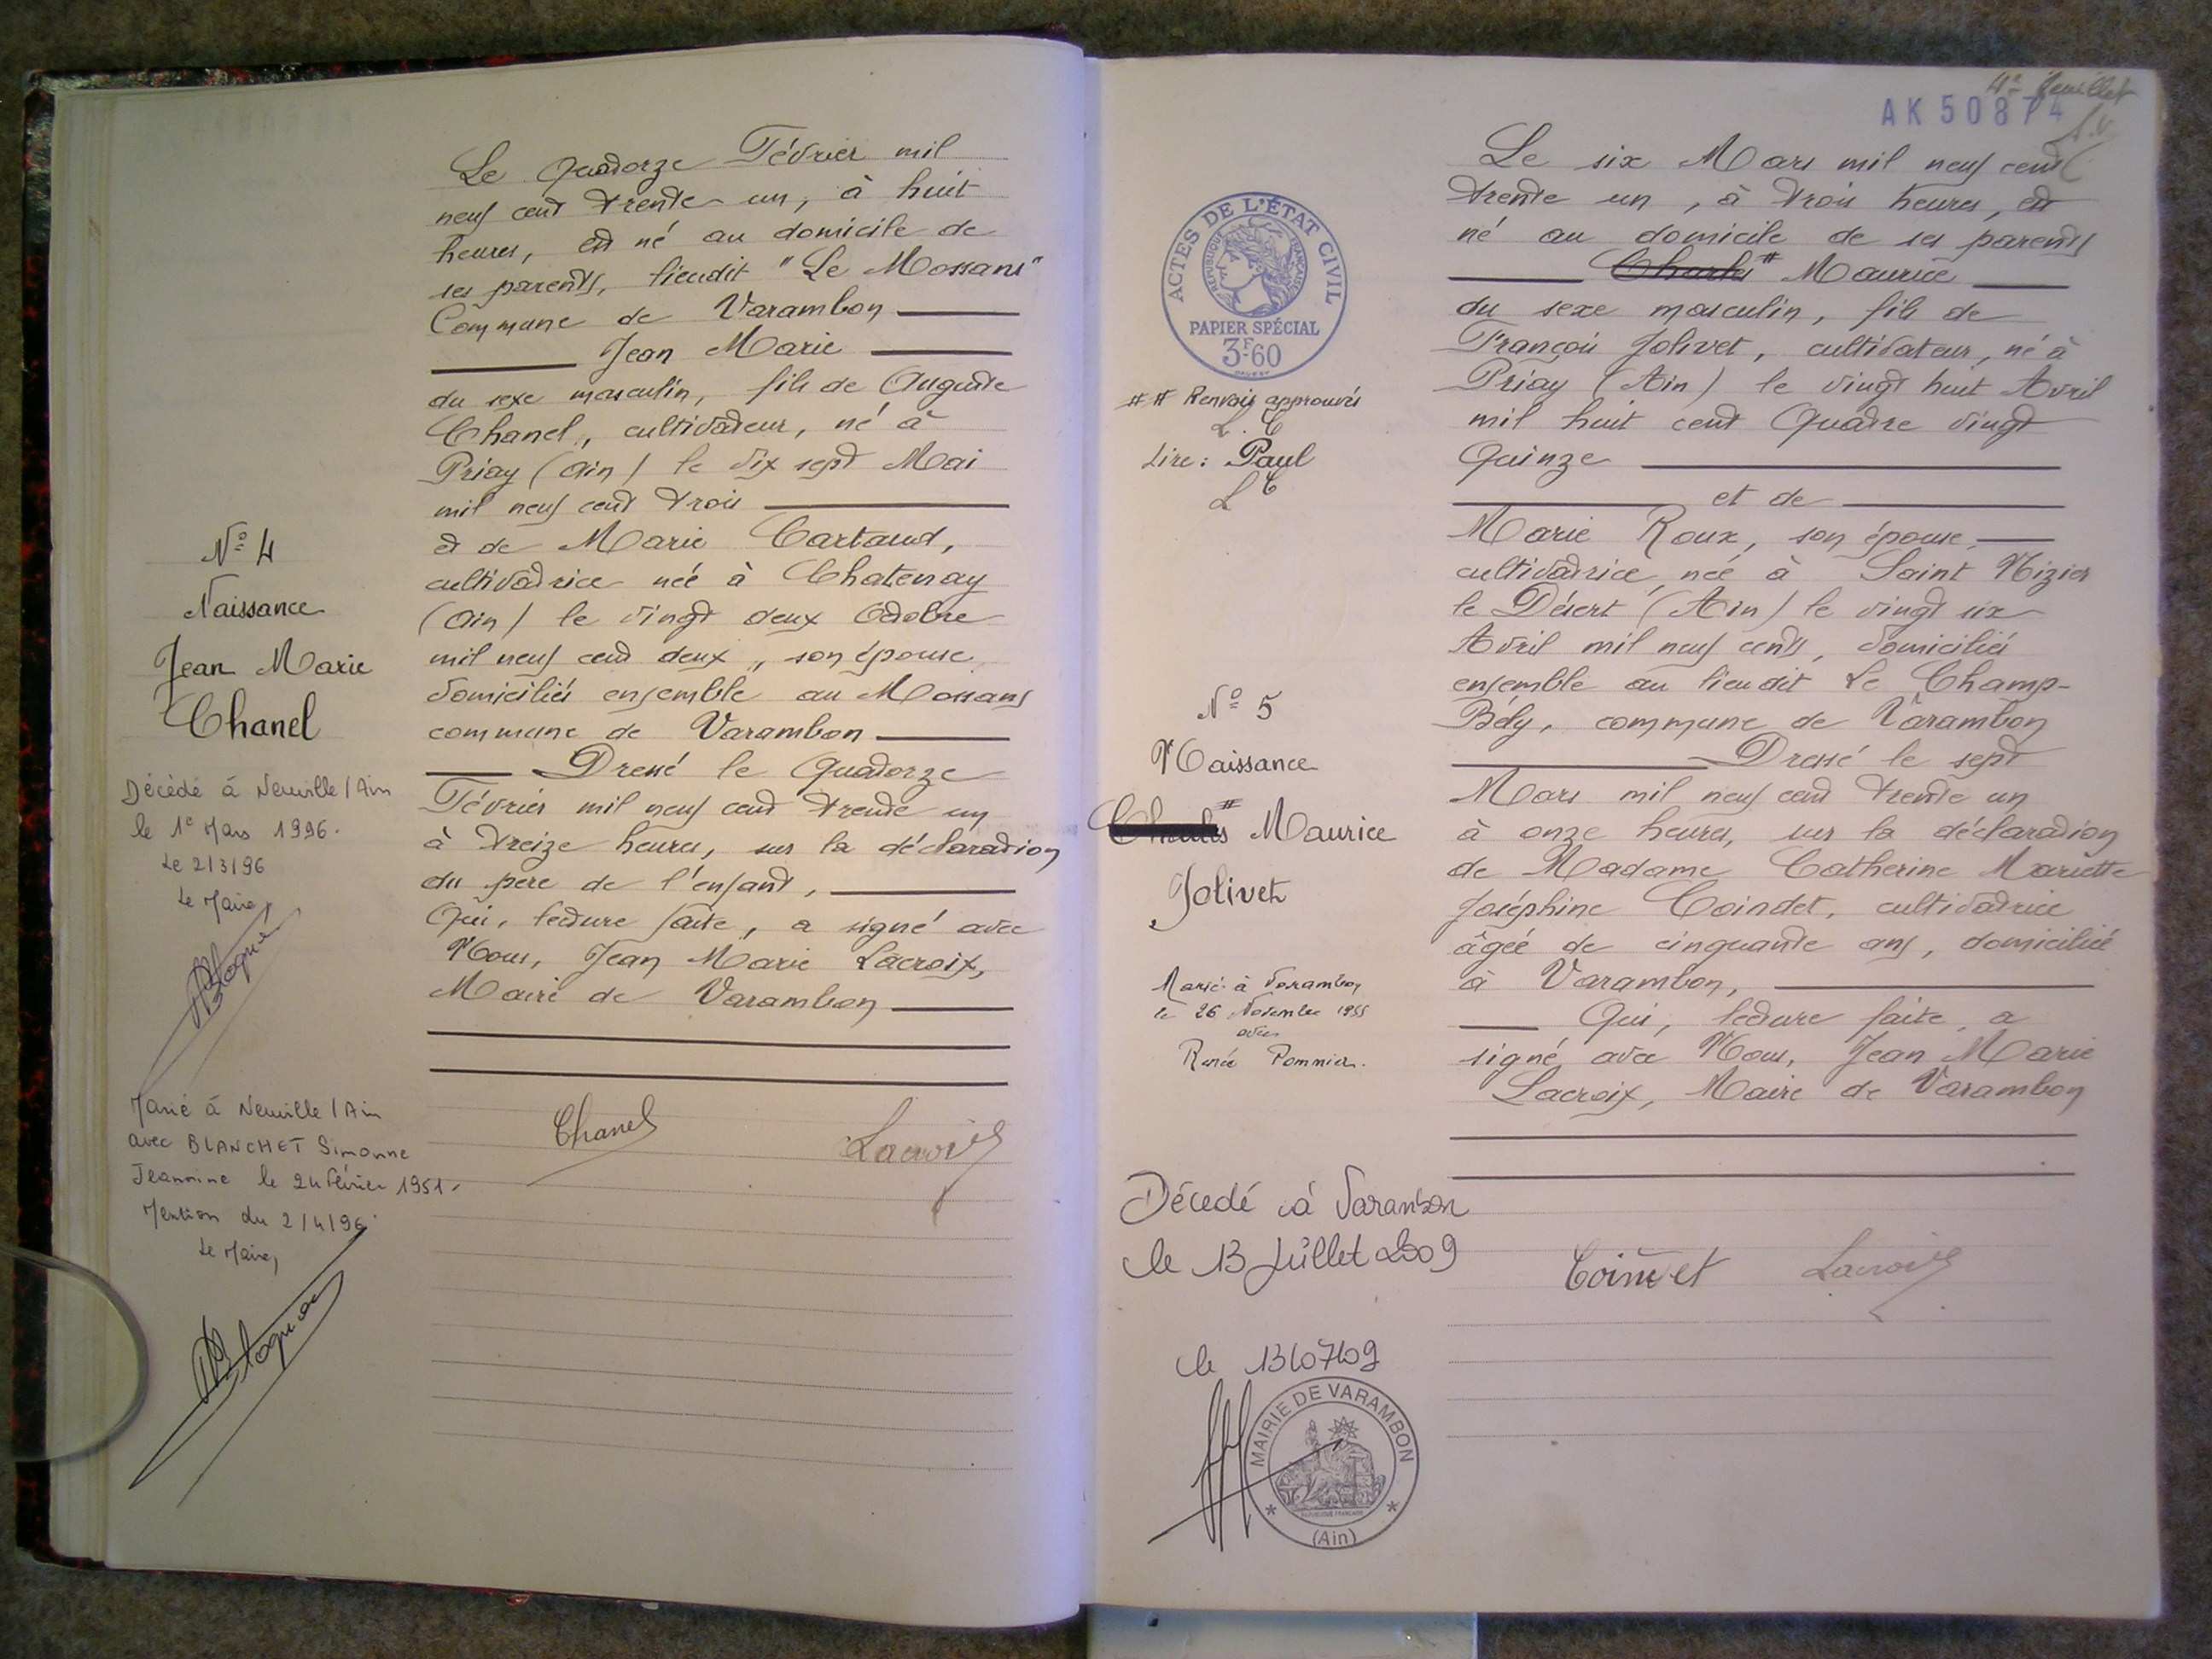 Le Quatorze Février mil
neuf cent trente un, à huit
heures, est né au domicile de
ses parents, lieudit "Le Mossans"
Commune de Varambon
Jean Marie
du sexe masculin, fils de Auguste
Chanel, cultivateur, né à
Priay (Ain) le dix sept Mai
mil neuf cent trois
et de Marie Cartaud,
cultivatrice née à Chatenay
(Ain) le vingt deux Octobre
mil neuf cent deux, son épouse
domiciliés ensemble au Mossans
commune de Varambon
Dressé le Quatorze
Février mil neuf cent trente un
à treize heures, sur la déclaration
du père de l'enfant,
Qui, lecture faite, a signé avec
Nous, Jean Marie Lacroix,
Maire de Varambon
Chanel
Lacroix
N° 4
Naissance
Jean Marie
Chanel
Décédé à Neuville/Ain
le 1e Mars 1996.
Le 2/3/96
Le Maire,
Marié à Neuville/Ain
avec BLANCHET Simonne
Jeannine le 24 février 1951.
Mention du 2/4/96
Le Maire,
4e feuillet
AK 50874
ACTES DE L'ÉTAT CIVIL
RÉPUBLIQUE FRANÇAISE
PAPIER SPÉCIAL
3F.60
## Renvois approuvés
L.C
Lire: Paul
LC
N° 5
Naissance
Charles # Maurice
Jolivet
Marié à Varambon
le 26 Novembre 1955
avec
Renée Pommier.
Décedé à Varambon
le 13 Juillet 2009
le 13/07/09
MAIRIE DE VARAMBON
(Ain)
Le six Mars mil neuf cent
trente un, à trois heures, est
né au domicile de ses parents
Charles # Maurice
du sexe masculin, fils de
François Jolivet, cultivateur, né à
Priay (Ain) le vingt huit Avril
mil huit cent Quatre vingt
Quinze
et de
Marie Roux, son épouse,
cultivatrice, née à Saint Nizier
le Désert (Ain) le vingt six
Avril mil neuf cents, domiciliés
ensemble au lieu dit Le Champ-
Bély, commune de Varambon
Dressé le sept
Mars mil neuf cent trente un
à onze heures, sur la déclaration
de Madame Catherine Mariette
Joséphine Coindet, cultivatrice
âgée de cinquante ans, domiciliée
à Varambon,
Qui, lecture faite, a
signé avec Nous, Jean Marie
Lacroix, Maire de Varambon
Lacroix